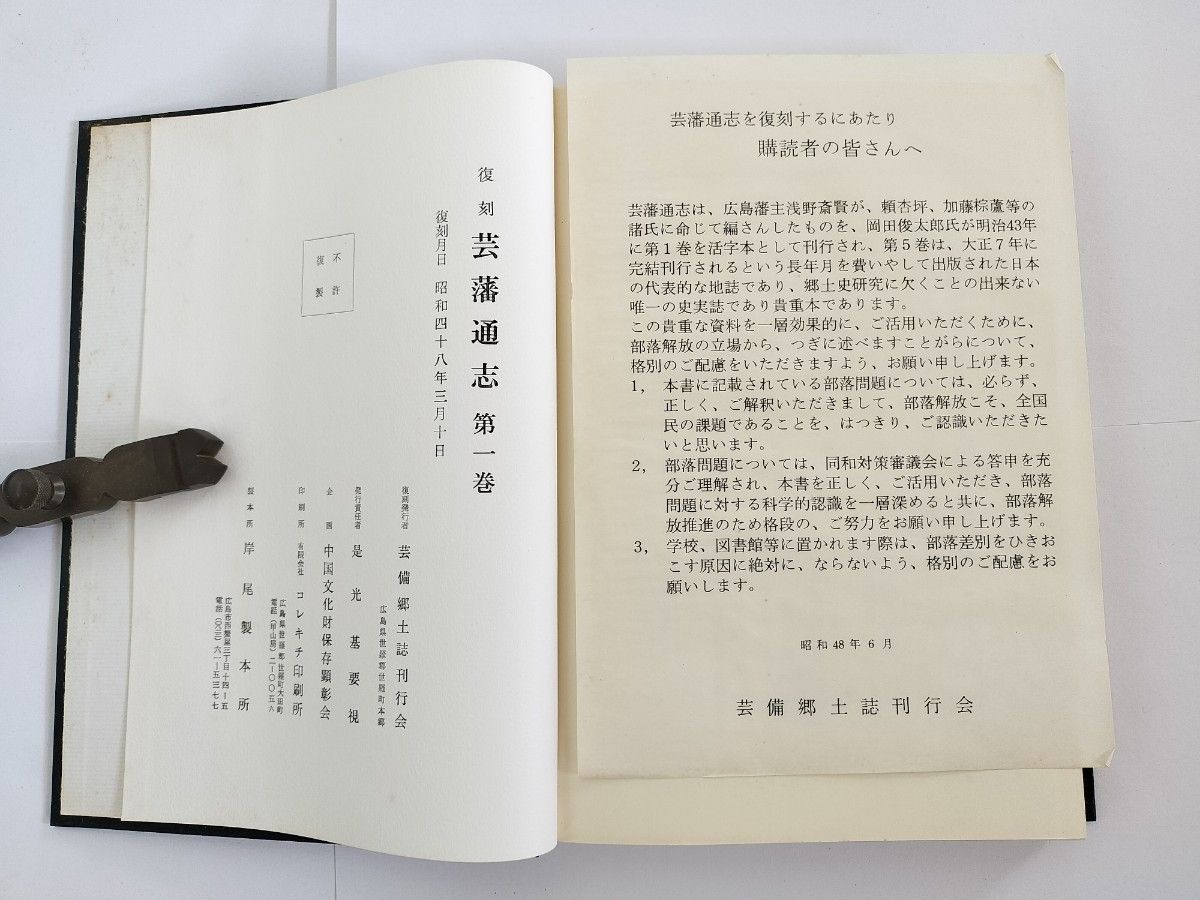 復刻 芸藩通志 第一巻
復刻月日 昭和四十八年三月十日
不許
復製
復刻発行者 芸備郷土誌刊行会
広島県世羅郡世羅町本郷
発行責任者 是光基要視
企画 中国文化財保存顕彰会
印刷所 有限会社 コレキチ印刷所
広島県世羅郡世羅町大田町
電話(甲山局)二一〇〇五六
製本所 岸尾製本所
電話
芸藩通志を復刻するにあたり
購読者の皆さんへ
芸藩通志は、広島藩主浅野斎賢が、頼杏坪、加藤棕蘆等の
諸氏に命じて編さんしたものを、岡田俊太郎氏が明治43年
に第1巻を活字本として刊行され、第5巻は、大正7年に
完結刊行されるという長年月を費いやして出版された日本
の代表的な地誌であり、郷土史研究に欠くことの出来ない
唯一の史実誌であり貴重本であります。
この貴重な資料を一層効果的に、ご活用いただくために、
部落解放の立場から、つぎに述べますことがらについて、
格別のご配慮をいただきますよう、お願い申し上げます。
1, 本書に記載されている部落問題については、必らず、
正しく、ご解釈いただきまして、部落解放こそ、全国
民の課題であることを、はつきり、ご認識いただきた
いと思います。
2, 部落問題については、同和対策審議会による答申を充
分ご理解され、本書を正しく、ご活用いただき、部落
問題に対する科学的認識を一層深めると共に、部落解
放推進のため格段の、ご努力をお願い申し上げます。
3, 学校、図書館等に置かれます際は、部落差別をひきお
こす原因に絶対に、ならないよう、格別のご配慮をお
願いします。
昭和48年6月
芸備郷土誌刊行会